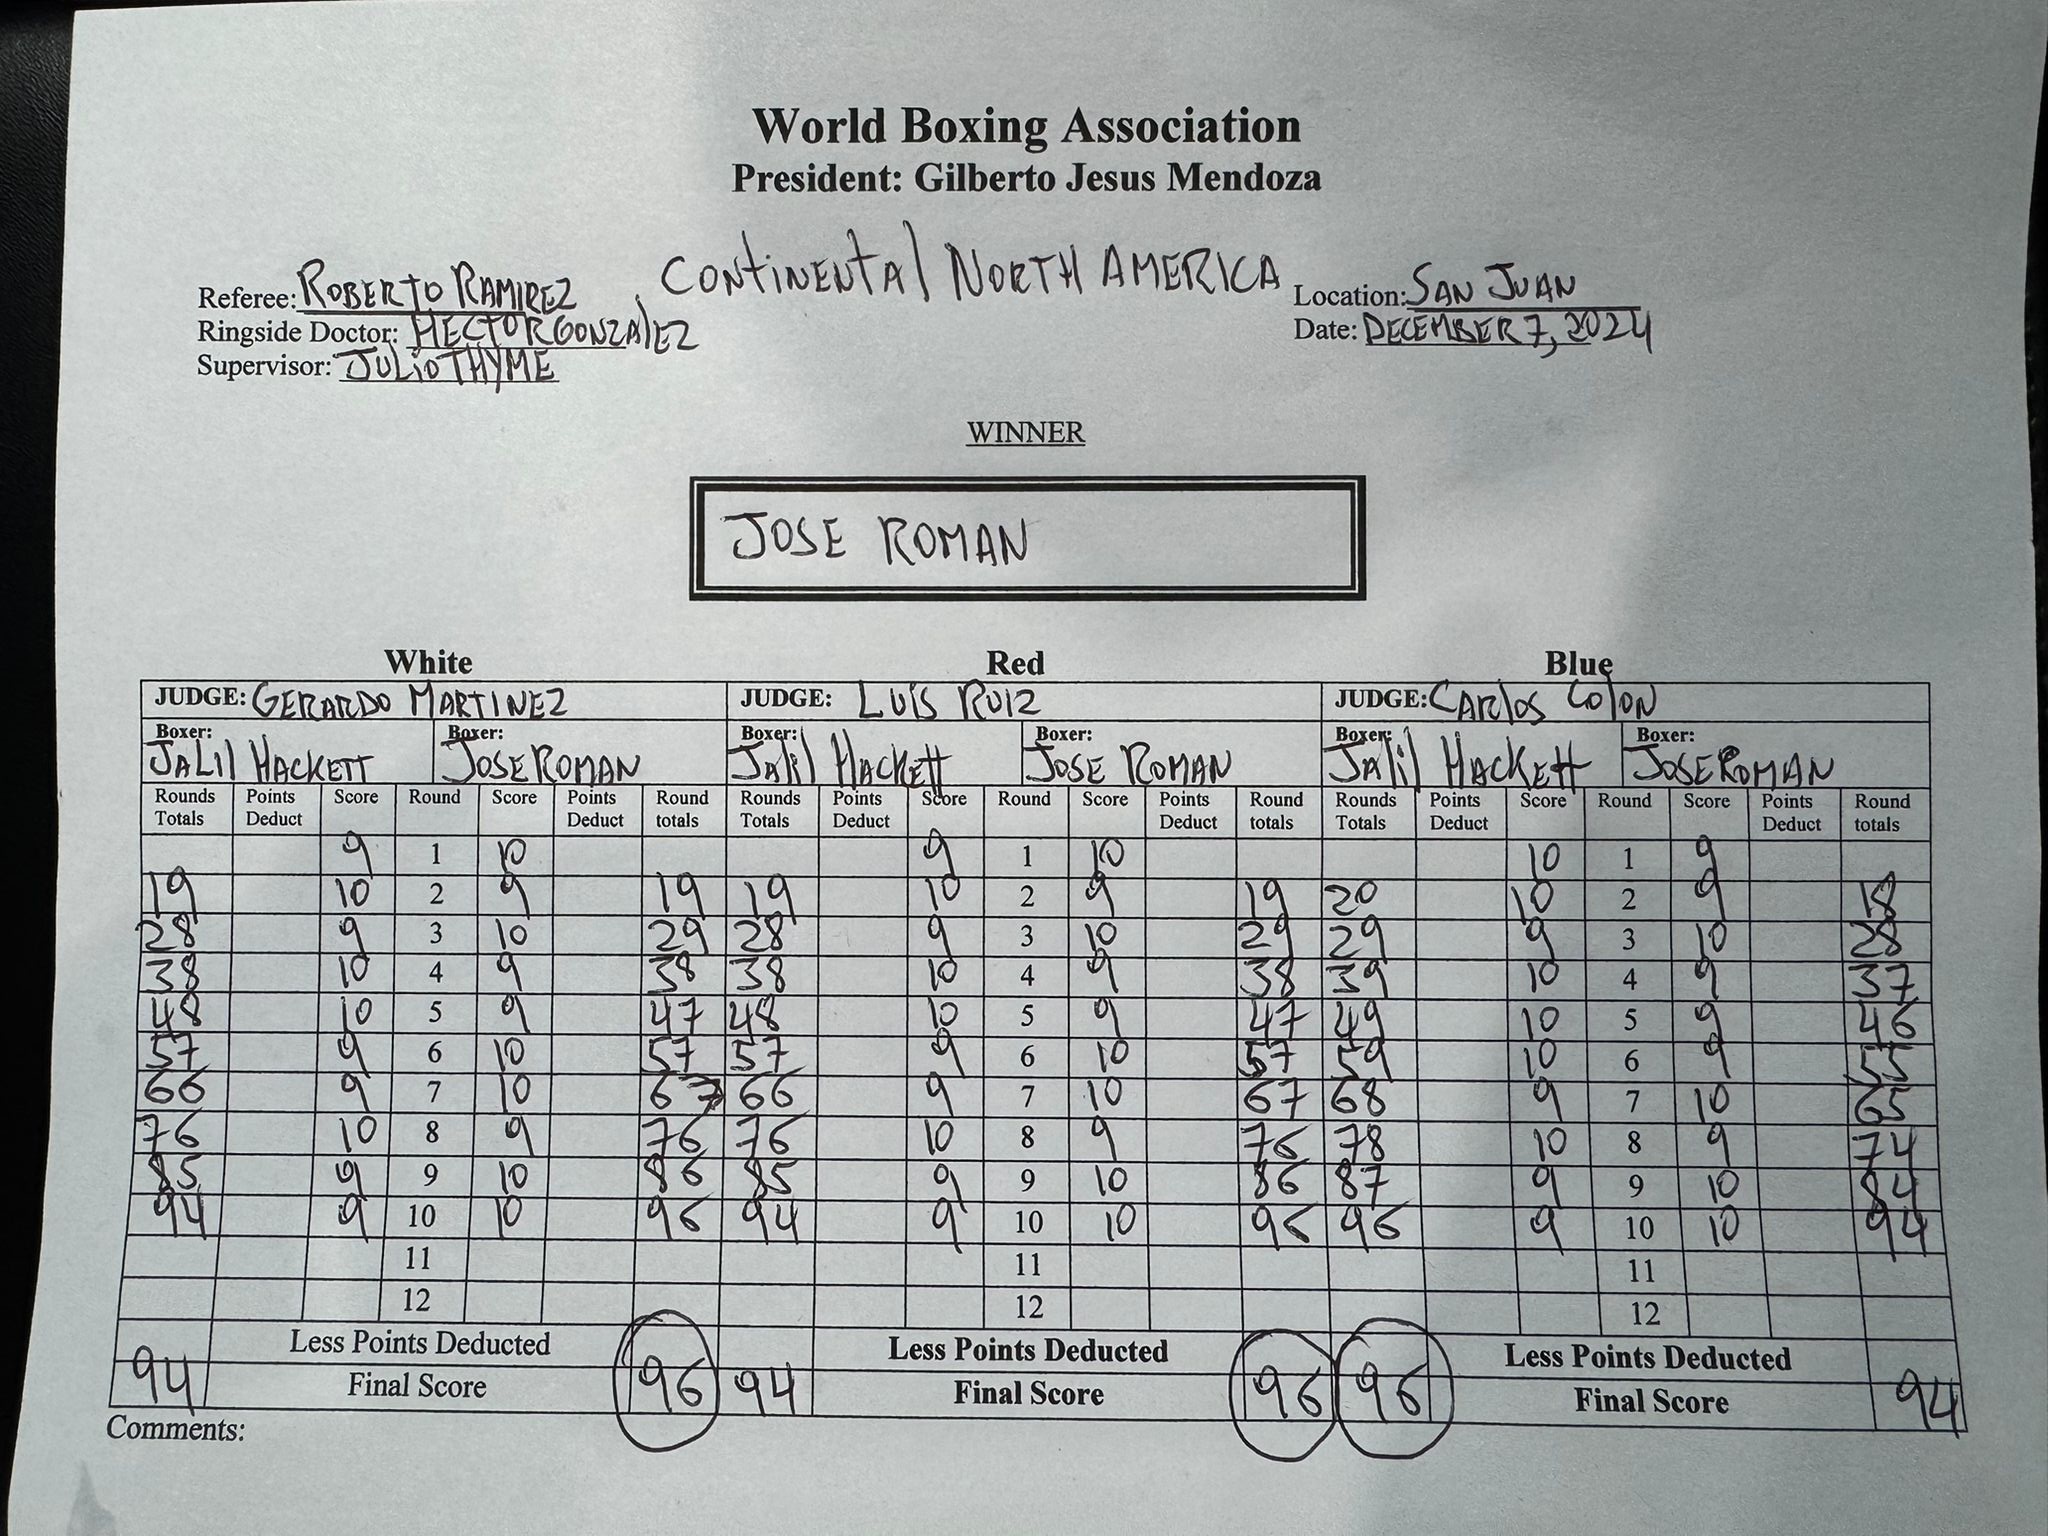 World Boxing Association
President: Gilberto Jesus Mendoza
CONTINENTAL NORTH AMERICA
Referee: ROBERTO RAMIREZ
Location: SAN JUAN
Ringside Doctor: HECTOR GONZALEZ
Date: DECEMBER 7, 2024
Supervisor: JULIO THYME
WINNER
JOSE ROMAN
White Red Blue
JUDGE: GERARDO MARTINEZ JUDGE: LUIS RUIZ JUDGE: CARLOS COLON
Boxer: Boxer: Boxer: Boxer: Boxer: Boxer:
JALIL HACKETT JOSE ROMAN JALIL HACKETT JOSE ROMAN JALIL HACKETT JOSE ROMAN
Rounds Points Score Round Score Points Round Rounds Points Score Round Score Points Round Rounds Points Score Round Score Points Round
Totals Deduct Deduct totals Totals Deduct Deduct totals Totals Deduct Deduct totals
9 1 10 9 1 10 10 1 9
19 10 2 9 19 19 10 2 9 19 20 10 2 9 18
28 9 3 10 29 28 9 3 10 29 29 9 3 10 28
38 10 4 9 38 38 10 4 9 38 39 10 4 9 37
48 10 5 9 47 48 10 5 9 47 49 10 5 9 46
57 9 6 10 57 57 9 6 10 57 59 10 6 9 55
66 9 7 10 67 66 9 7 10 67 68 9 7 10 65
76 10 8 9 76 76 10 8 9 76 78 10 8 9 74
85 9 9 10 86 85 9 9 10 86 87 9 9 10 84
94 9 10 10 96 94 9 10 10 96 96 9 10 10 94
11 11 11
12 12 12
Less Points Deducted Less Points Deducted Less Points Deducted
94 Final Score 96 94 Final Score 96 96 Final Score 94
Comments: